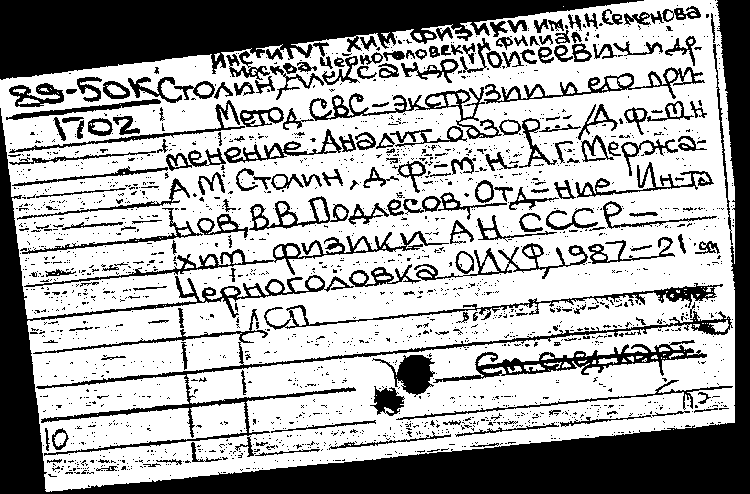 Институт хим. физики им. Н.Н. Семенова.
Москва. Черноголовский филиал.
89-50К Столин, Александр Моисеевич и др.
1702 Метод СВС-экструзии и его при-
менение: Аналит. обзор. / Д.ф.-м.н
А.М. Столин, д.ф.-м.н. А.Г. Мержа-
нов, В.В. Подлесов; Отд-ние Ин-та
хим физики АН СССР-
Черноголовка: ОИХФ, 1987-21 см
ДСП
См. след. карт.
10